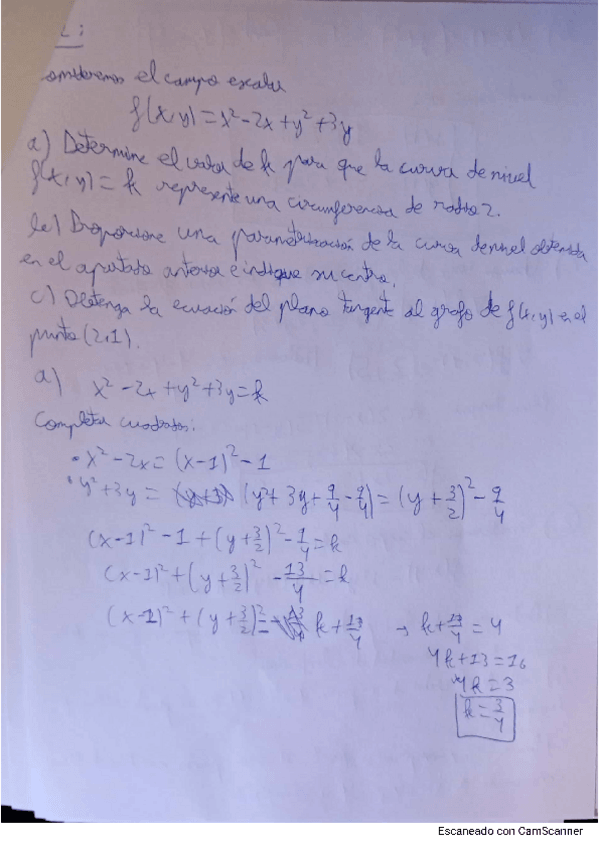 2:
onsideremos el campo escalar
f(x,y) = x² - 2x + y² + 3y
a) Determine el valor de k para que la curva de nivel
f(x,y) = k represente una circunferencia de radio 2.
b) Proporcione una parametrización de la curva de nivel obtenida
en el apartado anterior e indique su centro.
c) Obtenga la ecuación del plano tangente al grafo de f(x,y) en el
punto (2,1).
a) x² - 2x + y² + 3y = k
Completar cuadrados:
• x² - 2x = (x-1)² - 1
• y² + 3y = (y² + 3y + 9/4 - 9/4) = (y + 3/2)² - 9/4
(x-1)² - 1 + (y + 3/2)² - 1/4 = k
(x-1)² + (y + 3/2)² - 13/4 = k
(x-1)² + (y + 3/2)² = k + 13/4 → k + 13/4 = 4
4k + 13 = 16
4k = 3
k = 3/4
Escaneado con CamScanner